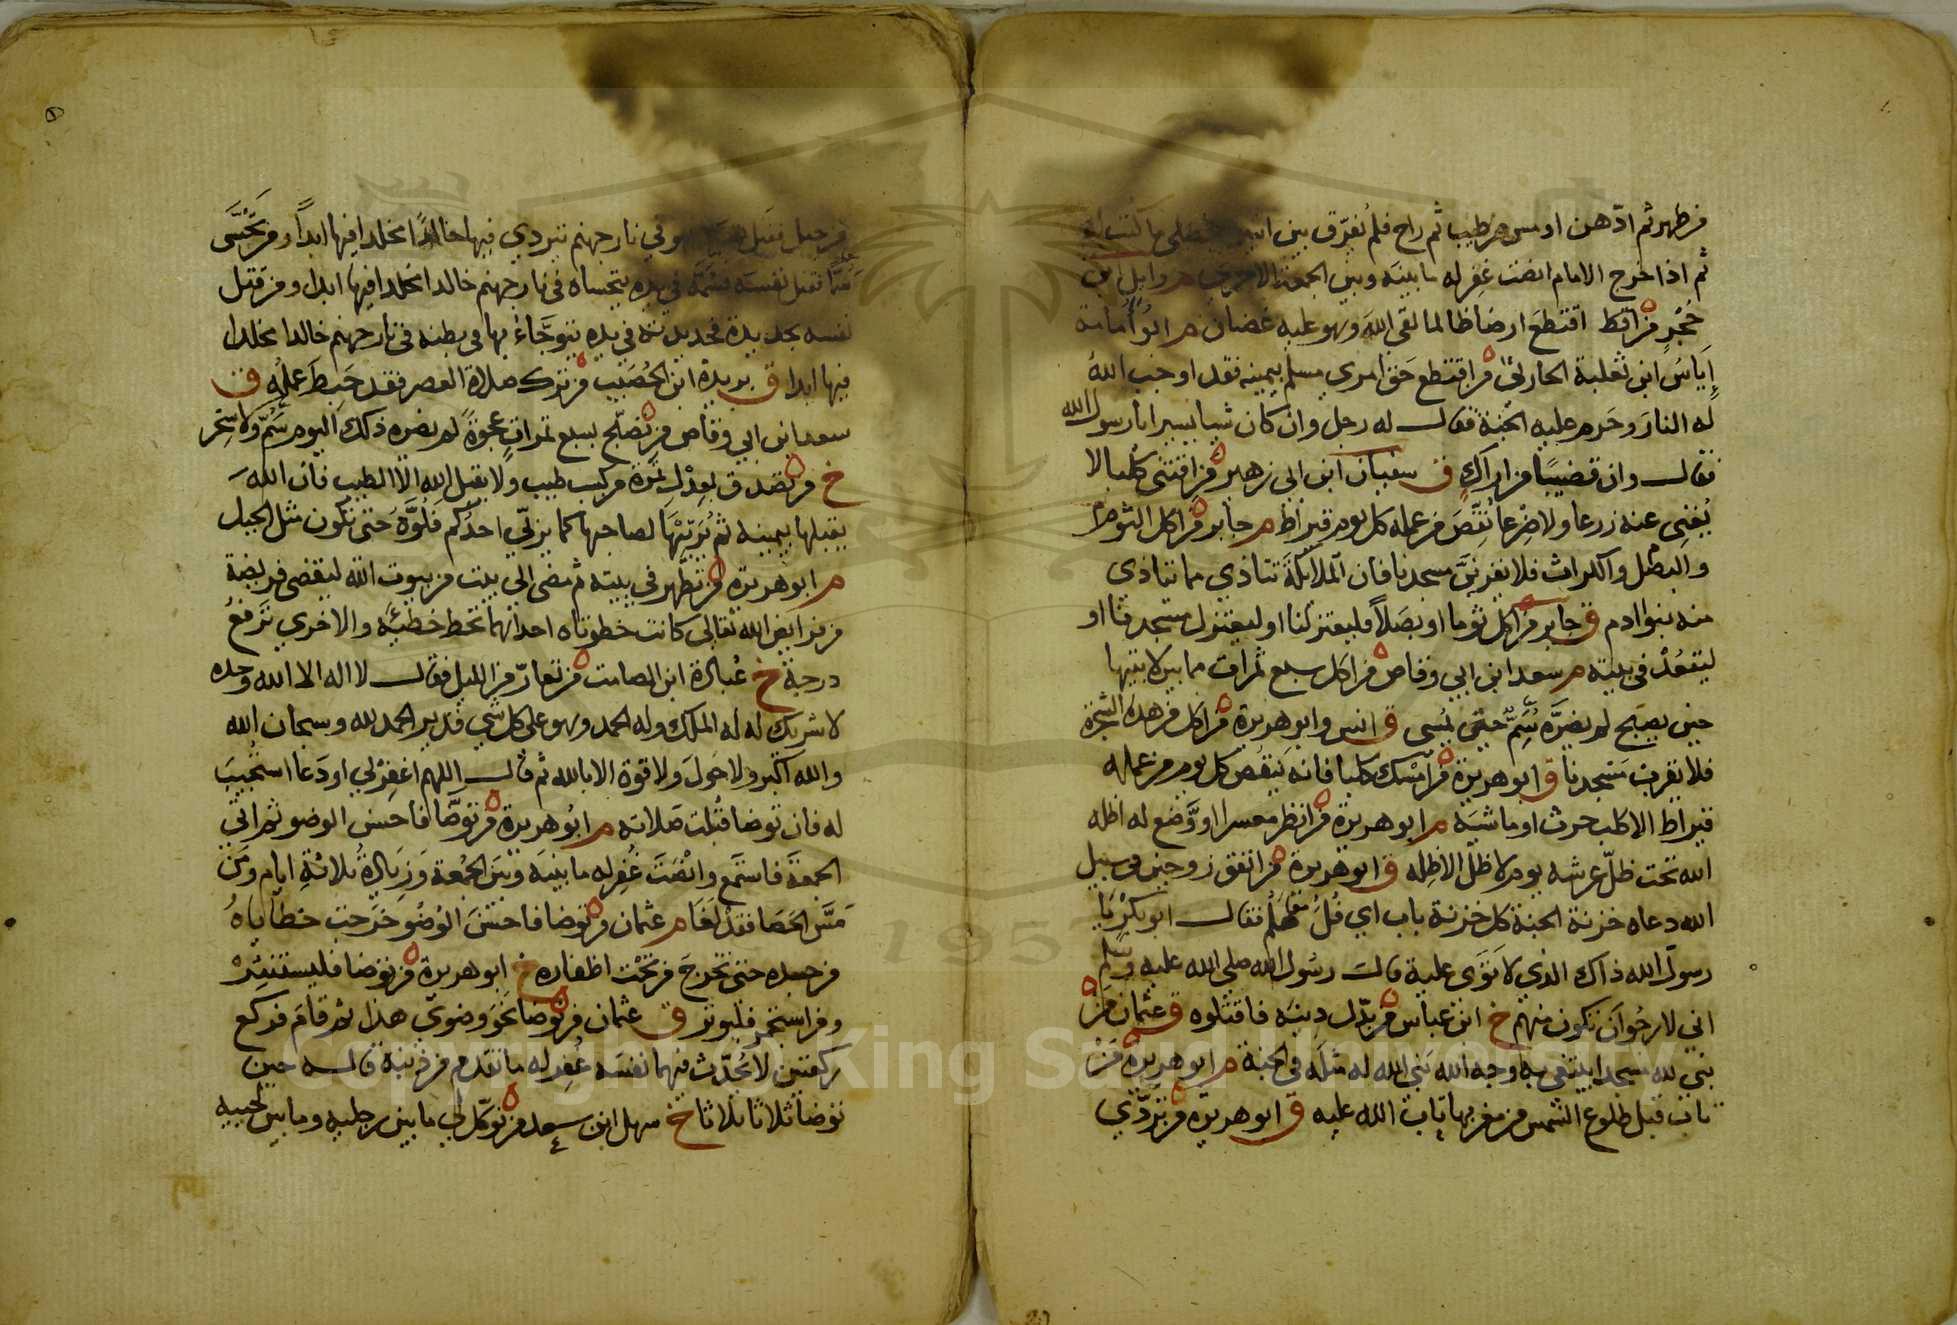 من طهر ثم ادّهن او مس من طيب ثم راح فلم يُفرّق بين اثنين فصلى ما كُتب له
ثم اذا خرج الامام انصت غفر له ما بينه وبين الجمعة الاخرى م وايل ابن
حُجْرٍ من اقتطع ارضا ظالما لقي الله وهو عليه غضبان م ابو أُمامة
إِيَاسُ ابن ثعلبة الحارثي من اقتطع حق امرئ مسلم بيمينه فقد اوجب اللهُ
له النارَ وحَرم عليه الجنة فقال له رجل وان كان شيا يسيرا يا رسول الله
فقال وان قضيبًا من اراكٍ ق سفيان ابن ابي زهير من اقتنى كلبا لا
يُغني عنه زرعا ولا ضرعا نُقِصَ من عمله كل يوم قيراط م جابر من اكل الثوم
والبصل والكراث فلا يقربنَّ مسجدنا فان الملائكة تتاذي مما يتاذي
منه بنوا ادم ق جابر من اكل ثوما او بصلاً فليعتزلنا او ليعتزل مسجدنا او
ليقعُدْ في بيته م سعد ابن ابي وقاص من اكل سبع تمرات مما بين لابتيها
حين يصبح لم يضرَّه سُمٌّ حتى يُمسي ق انس وابو هريرة من اكل من هذه الشجرة
فلا يقربن مَسْجدنا ق ابو هريرة من امْسَك كلبا فانه يَنقُص كل يوم من عمله
قيراط الا كلب حرث او ماشية م ابو هريرة من انظر معسرا او وَّضع له اظله
الله تحت ظلّ عرشه يوم لا ظل الا ظِله ق ابو هريرة من انفق زوجين في سبيل
الله دعاه خزنة الجنة كل خزنة باب اي فُلُ هَلُم فقال ابو بكرْ يا
رسولَ الله ذاك الذي لا تَوَى عليه قال رسُول الله صلى الله عليه وسلم
اني لارجُوا ان تكون منهم خ ابن عباس من بدّل دينَه فاقتلوه ق عثمان من
بني لله مسجدا يبتغي به وجه الله بَنى الله له مثلَه في الجنة م ابو هريرة مَنْ
تاب قبل طلوع الشمس من مغربها تاب الله عليه ق ابو هريرة من تردّي
من جبل فقتل نفسه فهو في نار جهنم يتردي فيها خالدًا مخلدا فيها ابداً ومن تَحَسَّى
سمًّا فقتل نفسَه فسُمّه في يده يتحساه في نار جهنم خالدا مخلدا فيها ابدا ومن قتل
نفسه بحديدة فحديدته في يده يتوجَّاءُ بها في بطنه في نار جهنم خالدا مخلدا
فيها ابدا ق بريدة ابن الحُصَيْب من ترك صلاة العصر فقد حَبِطَ عملُه ق
سعد ابن ابي وقاص من تصبّح بسبع تمراتٍ عجوةً لم يضره ذلك اليوم سُمّ ولا سِحْر
خ من تصدق بعِدْل تمرة من كسب طيب ولا يقبل الله الا الطيب فان اللهَ
يقبلها بيمينه ثم يُرَبّيْهَا لصاحبها كما يربّي احدكم فُلُوَّهُ حتى تكون مثل الجبل
م ابو هريرة من تطهر في بيته ثم مضى الى بيت من بيوت الله ليقضي فريضة
من فرايض الله تعالى كانت خطوتاه احداهما تحط خطيئة والاخرى ترفعُ
درجة خ عُبادة ابن الصامت من تعارّ من الليل فقال لا اله الا الله وحده
لا شريك له له الملك وله الحمد وهو على كل شي قدير الحمد لله وسبحان الله
والله اكبر ولا حولَ ولا قوة الا بالله ثم قال اللهم اغفِرْ لي او دَعا استُجيبَ
له فان توضا قُبلت صلاته م ابو هريرة من توضَّا فاحسن الوضو ثم اتي
الجمعةَ فاستمع وانْصَتَ غُفِر له ما بينه وبين الجُمْعة وَزِيَادةُ ثلاثةِ ايام ومَن
مَسَّ الحَصا فقدْ لَغَا م عثمان من توضا فاحسَن الوُضُو خَرجت خطاياهُ
من جسده حتى تخرجَ من تحْت اظفاره خ ابو هريرة من توضا فليستنثِرْ
ومن استجمر فليوتر ق عثمان من توضا نحْوَ وضوئي هذا ثم قامَ فركع
ركعتين لا يُحَدّث فيهما نفسَه غُفِر له ما تقدم من ذنبه قاله حين
توضا ثلاثا ثلاثا خ سهل ابن سعد من توكّل لي ما بين رجليه وما بين لحييه
1957
Copyright © King Saud University